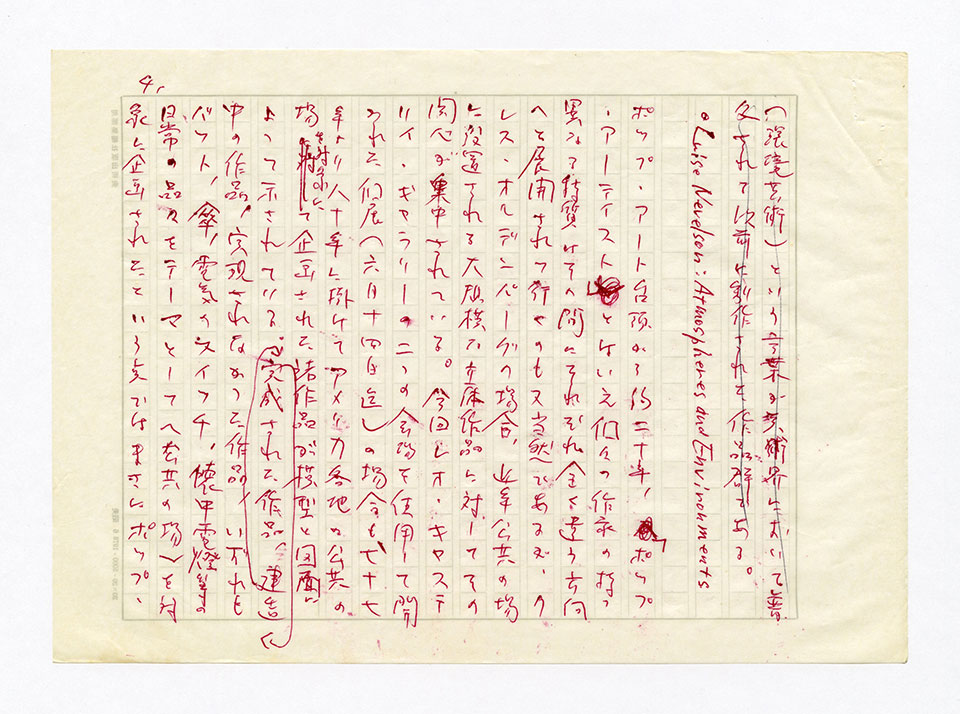 4,
(環境芸術)という言葉が美術界において普
及されて以前に制作された作品群である。
◦ Luise Nevelson: Atmospheres and Environments
ポップ・アート台頭から約二十年、ポップ
・アーティストとはいえ個々の作家の持つ
異なる特質はその間にそれぞれ全く違う方向
へと展開されて行くのも又当然であるが、ク
レス・オルデンバーグの場合、近年公共の場
に設置される大規模な立体作品に対してその
関心が集中されている。今回レオ・キャステ
リイ・ギャラリーの二つの会場を使用して開
かれた個展(六月十四日迄)の場合も七十七
年より八十年に掛けてアメリカ各地の公共の
場を対象にして企画された諸作品が模型と図面に
よって示されている。完成された作品、建造
中の作品、実現されなかった作品、いずれも
バット、傘、電気のスイッチ、懐中電燈等の
日常の品々をテーマとしてへ公共の場)を対
象に企画されたという点ではまさにポップ、